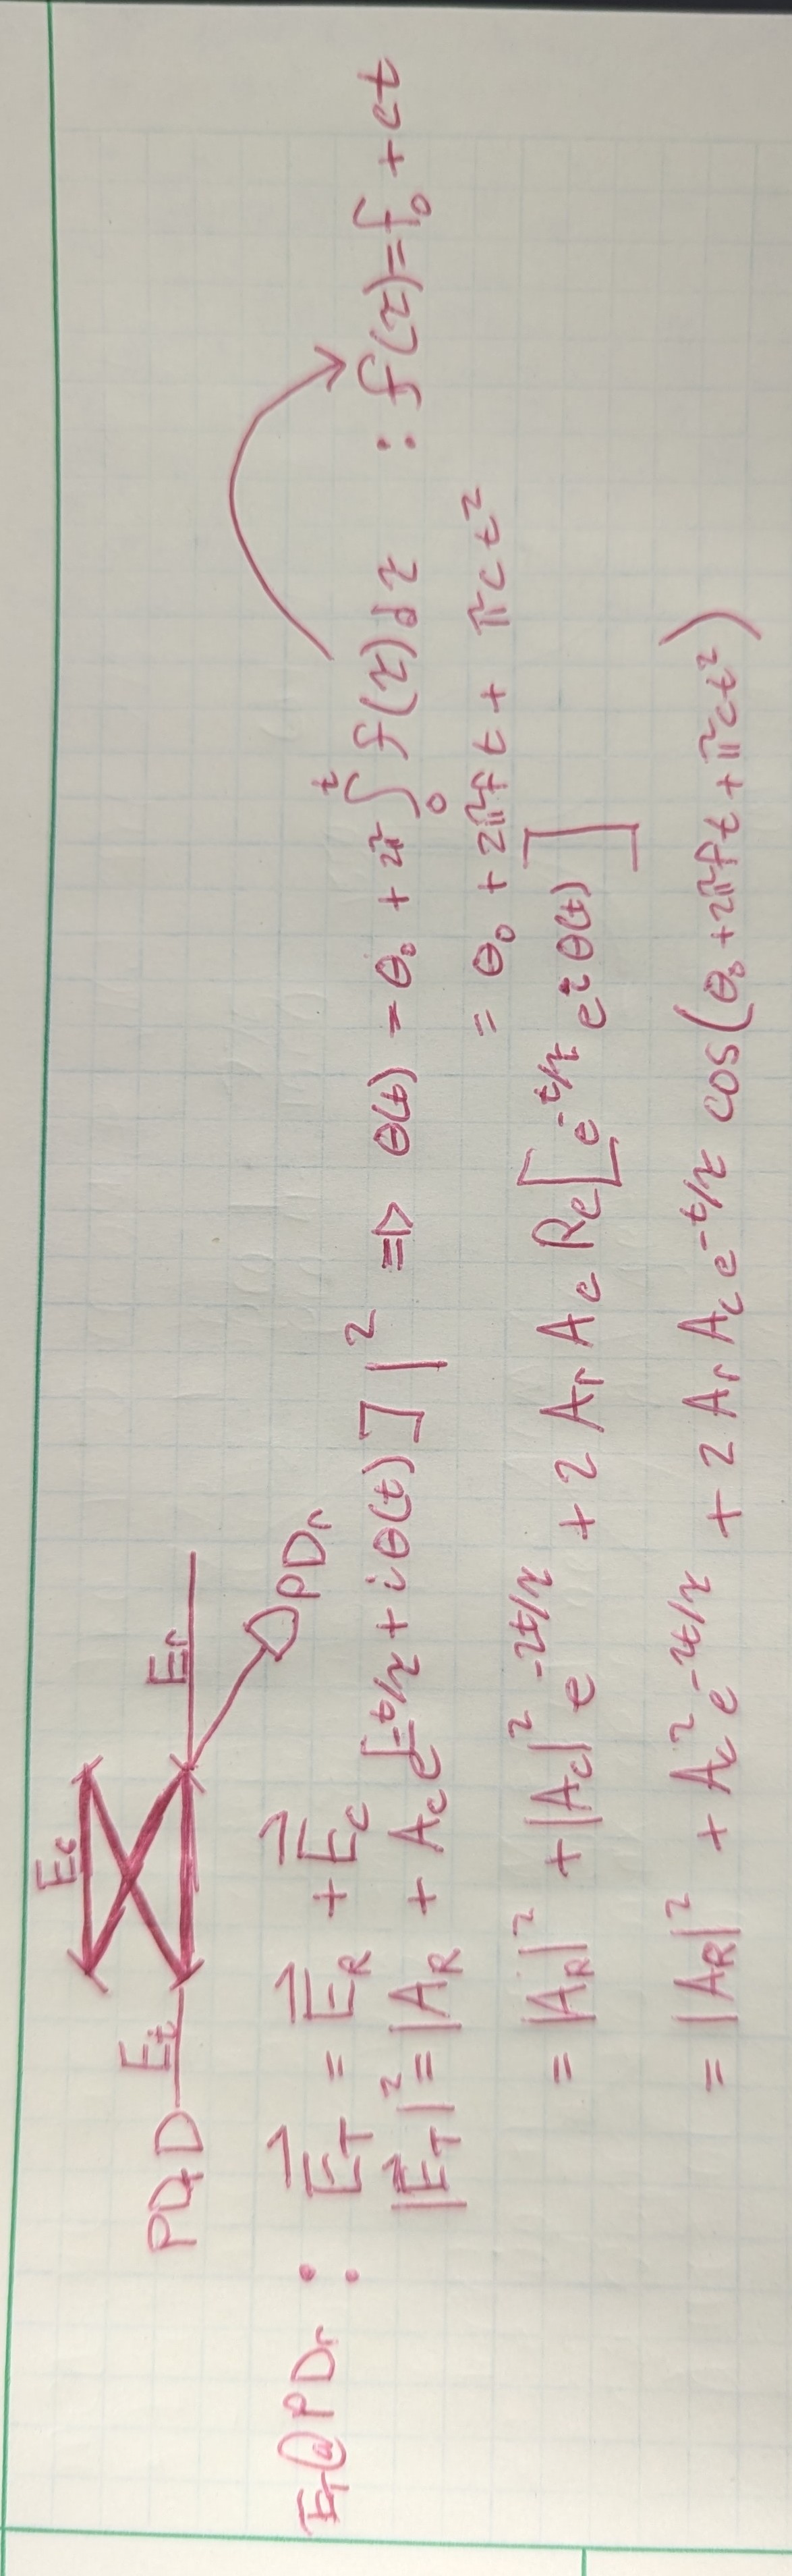 Ec
PDt Et Er
PDr
ET@PDr : E⃗_T = E⃗_R + E⃗_C
|E⃗_T|² = |A_R + A_c e^[-t/τ + iθ(t)]|² ⇒ θ(t) = θ₀ + 2π ∫₀ᵗ f(τ)dτ : f(τ) = f₀ + ct
= θ₀ + 2πft + πct²
= |A_R|² + |A_c|² e^{-2t/τ} + 2 A_r A_c Re[e^{-t/τ} e^{iθ(t)}]
= |A_R|² + A_c² e^{-2t/τ} + 2 A_r A_c e^{-t/τ} cos(θ₀ + 2πft + πct²)